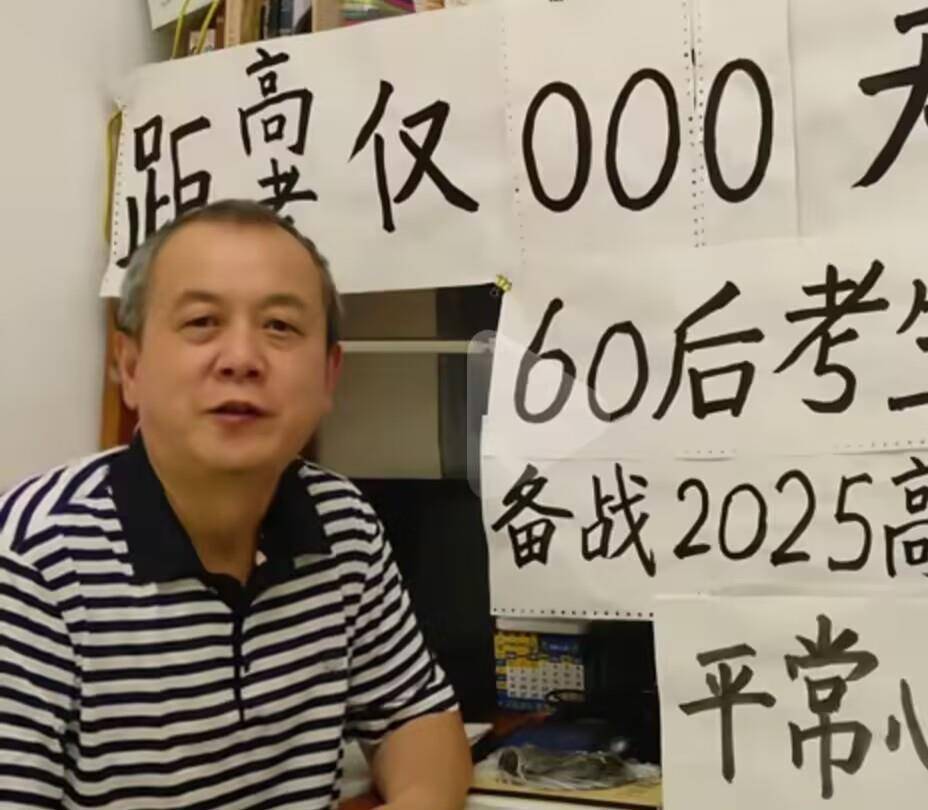 距高考仅000天
60后考生
备战2025高
平常心